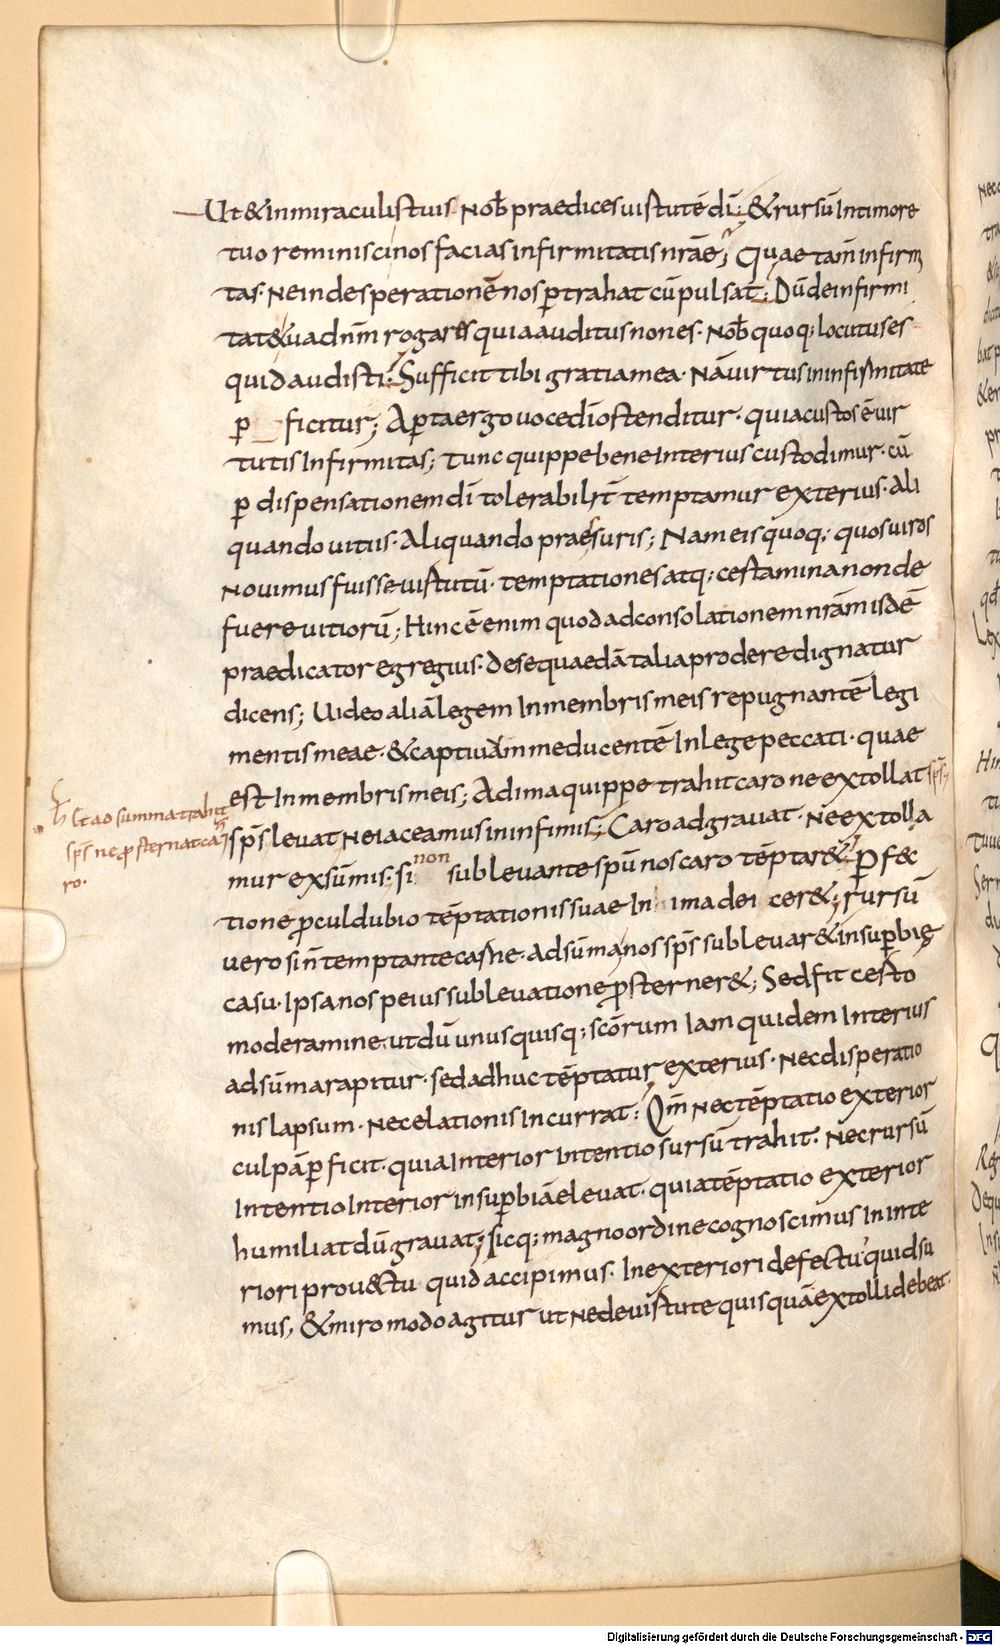 Ut & in miraculis tuis nob̄ praedices uirtutē dī; & rursū in timore
tuo reminisci nos facias infirmitatis nr̄ae; Quae tam̄ infirmi
tas. Ne in desperationē nos ꝑtrahat cū pulsat; Dū de infirmi
tate tua dn̄m rogares quia auditus non es. Nob̄ quoq; locutus es
quid audisti; Sufficit tibi gratia mea. Nā uirtus in infirmitate
ꝑ ficitur; Aꝑta ergo uoce dī ostenditur. quia custos ē uir
tutis infirmitas; Tunc quippe bene interius custodimur. cū
ꝑ dispensationem dī tolerabilit̄ temptamur exterius. Ali
quando uitiis. Aliquando praessuris; Nam eis quoq; quos uiros
nouimus fuisse uirtutū. temptationes atq; certamina non de
fuere uitiorū; Hinc ē enim quod ad consolationem nr̄am isdē
praedicator egregius. de se quaedā talia prodere dignatur
dicens; Uideo aliā legem in membris meis repugnantē legi
mentis meae. & captiuam me ducentē in lege peccati. quae
est in membris meis; Ad ima quippe trahit caro ne extollat sp̄s;
sp̄s leuat ne iaceamus in infimis; Caro adgrauat. Ne extolla
mur ex sūmis; si non subleuante sp̄u nos caro tēptar&; Ꝑf&c
tione ꝓculdubio tēptationis suae in ima deicer&; rursū
uero si n̄ temptante carne. ad sūma nos sp̄s subleuar& in suꝑbię
casu. Ipsa nos peius subleuatione ꝓsterner&; Sed fit certo
moderamine. ut dū unusquisq; sc̄orum iam quidem interius
ad sūma rapitur. sed adhuc tēptatur exterius. Nec disperatio
nis lapsum. nec elationis incurrat; Qm̄ nec tēptatio exterior
culpā ꝑficit. quia interior intentio sursū trahit. Nec rursū
intentio interior in suꝑbiā eleuat. quia tēptatio exterior
humiliat dū grauat; sicq; magno ordine cognoscimus in inte
riori prou&tu quid accipimus. In exteriori defectu quid su
mus; & miro modo agitur ut ne de uirtute quis quā extolli debeat.
ad summa trahit
sp̄s ne ꝓsternat ca
ro.
Digitalisierung gefördert durch die Deutsche Forschungsgemeinschaft - DFG